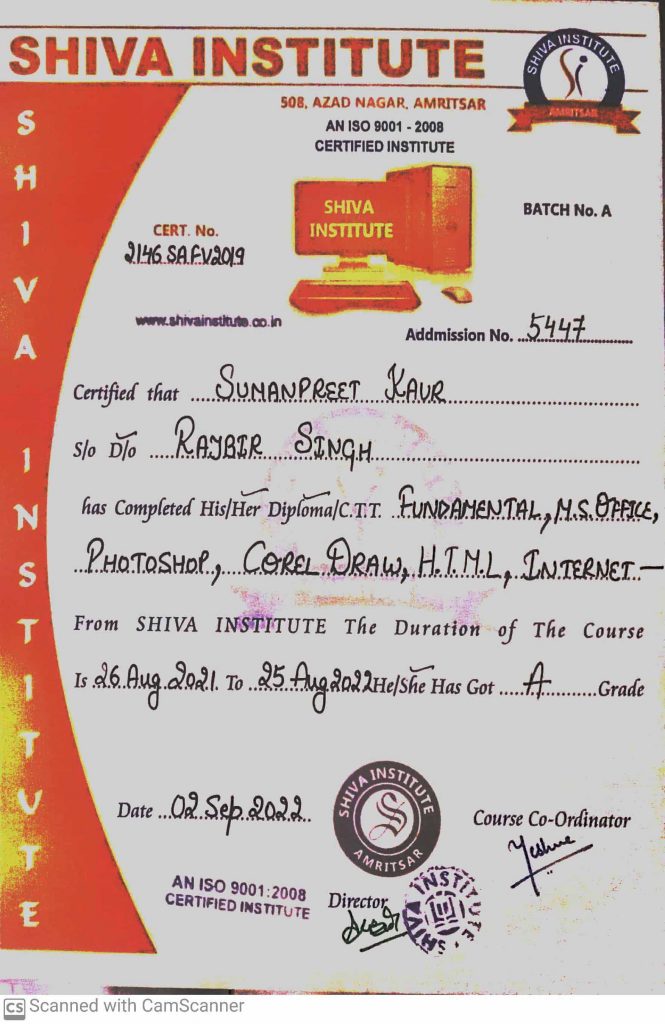 SHIVA INSTITUTE
SHIVA INSTITUTE
Si
AMRITSAR
508, AZAD NAGAR, AMRITSAR
AN ISO 9001 - 2008
CERTIFIED INSTITUTE
SHIVA INSTITUTE
SHIVA
INSTITUTE
BATCH No. A
CERT. No.
2146 SAFV2019
www.shivainstitute.co.in
Addmission No. 5447
Certified that SUMANPREET KAUR
S/o D/o RAJBIR SINGH
has Completed His/Her Diploma/C.T.T. FUNDAMENTAL, M.S. OFFICE,
PHOTOSHOP, COREL DRAW, H.T.M.L, INTERNET-
From SHIVA INSTITUTE The Duration of The Course
Is 26 Aug 2021. To 25 Aug 2022 He/She Has Got A Grade
Date 02 Sep 2022
SHIVA INSTITUTE
S
AMRITSAR
Course Co-Ordinator
AN ISO 9001:2008
CERTIFIED INSTITUTE
Director
SHIVA INSTITUTE
CS Scanned with CamScanner